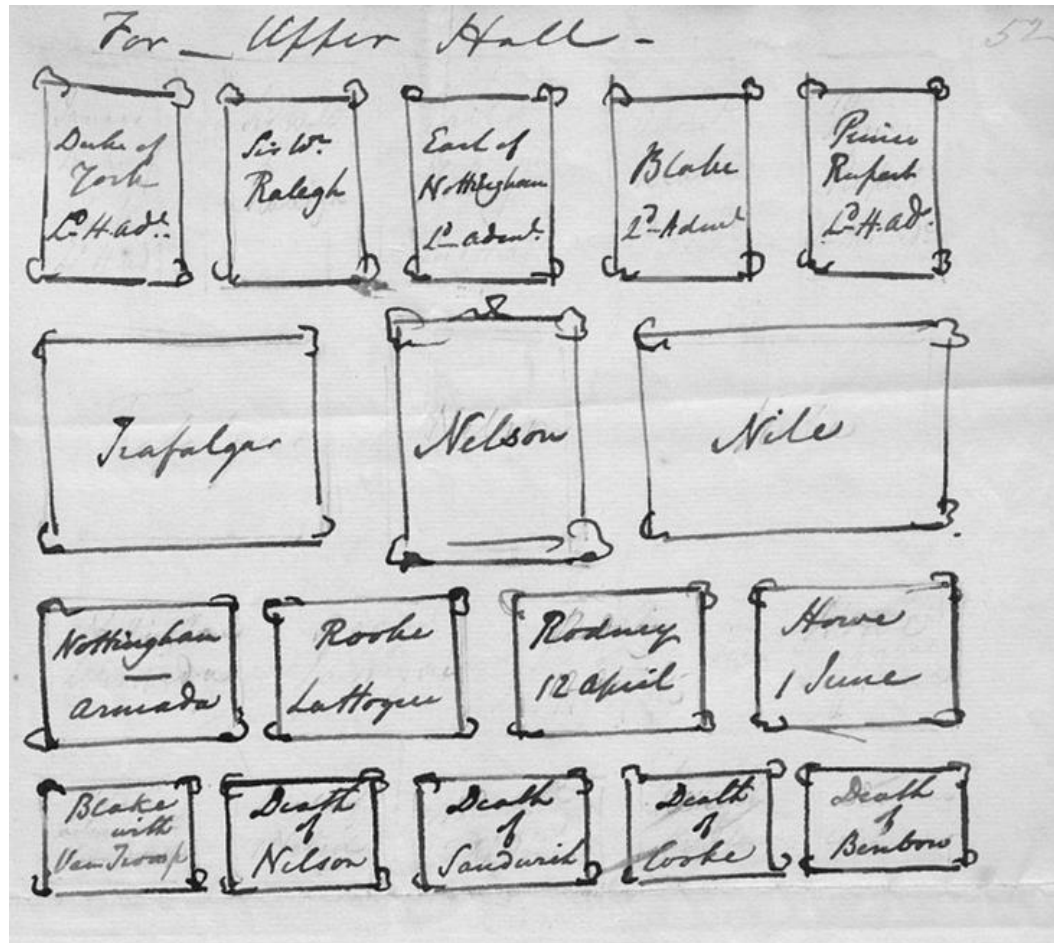 For _ Upper Hall -
52
Duke of
York
Ld. H. Adl.
Sir Wr.
Ralegh
Earl of
Nottingham
Ld. Adml.
Blake
Ld. Adml
Prince
Rupert
Ld. H. Adl.
Trafalgar
Nelson
Nile
Nottingham
—
Armada
Rooke
La Hogue
Rodney
12 April
Howe
1 June
Blake
with
Van Tromp
Death
of
Nelson
Death
of
Sandwich
Death
of
Cooke
Death
of
Benbow